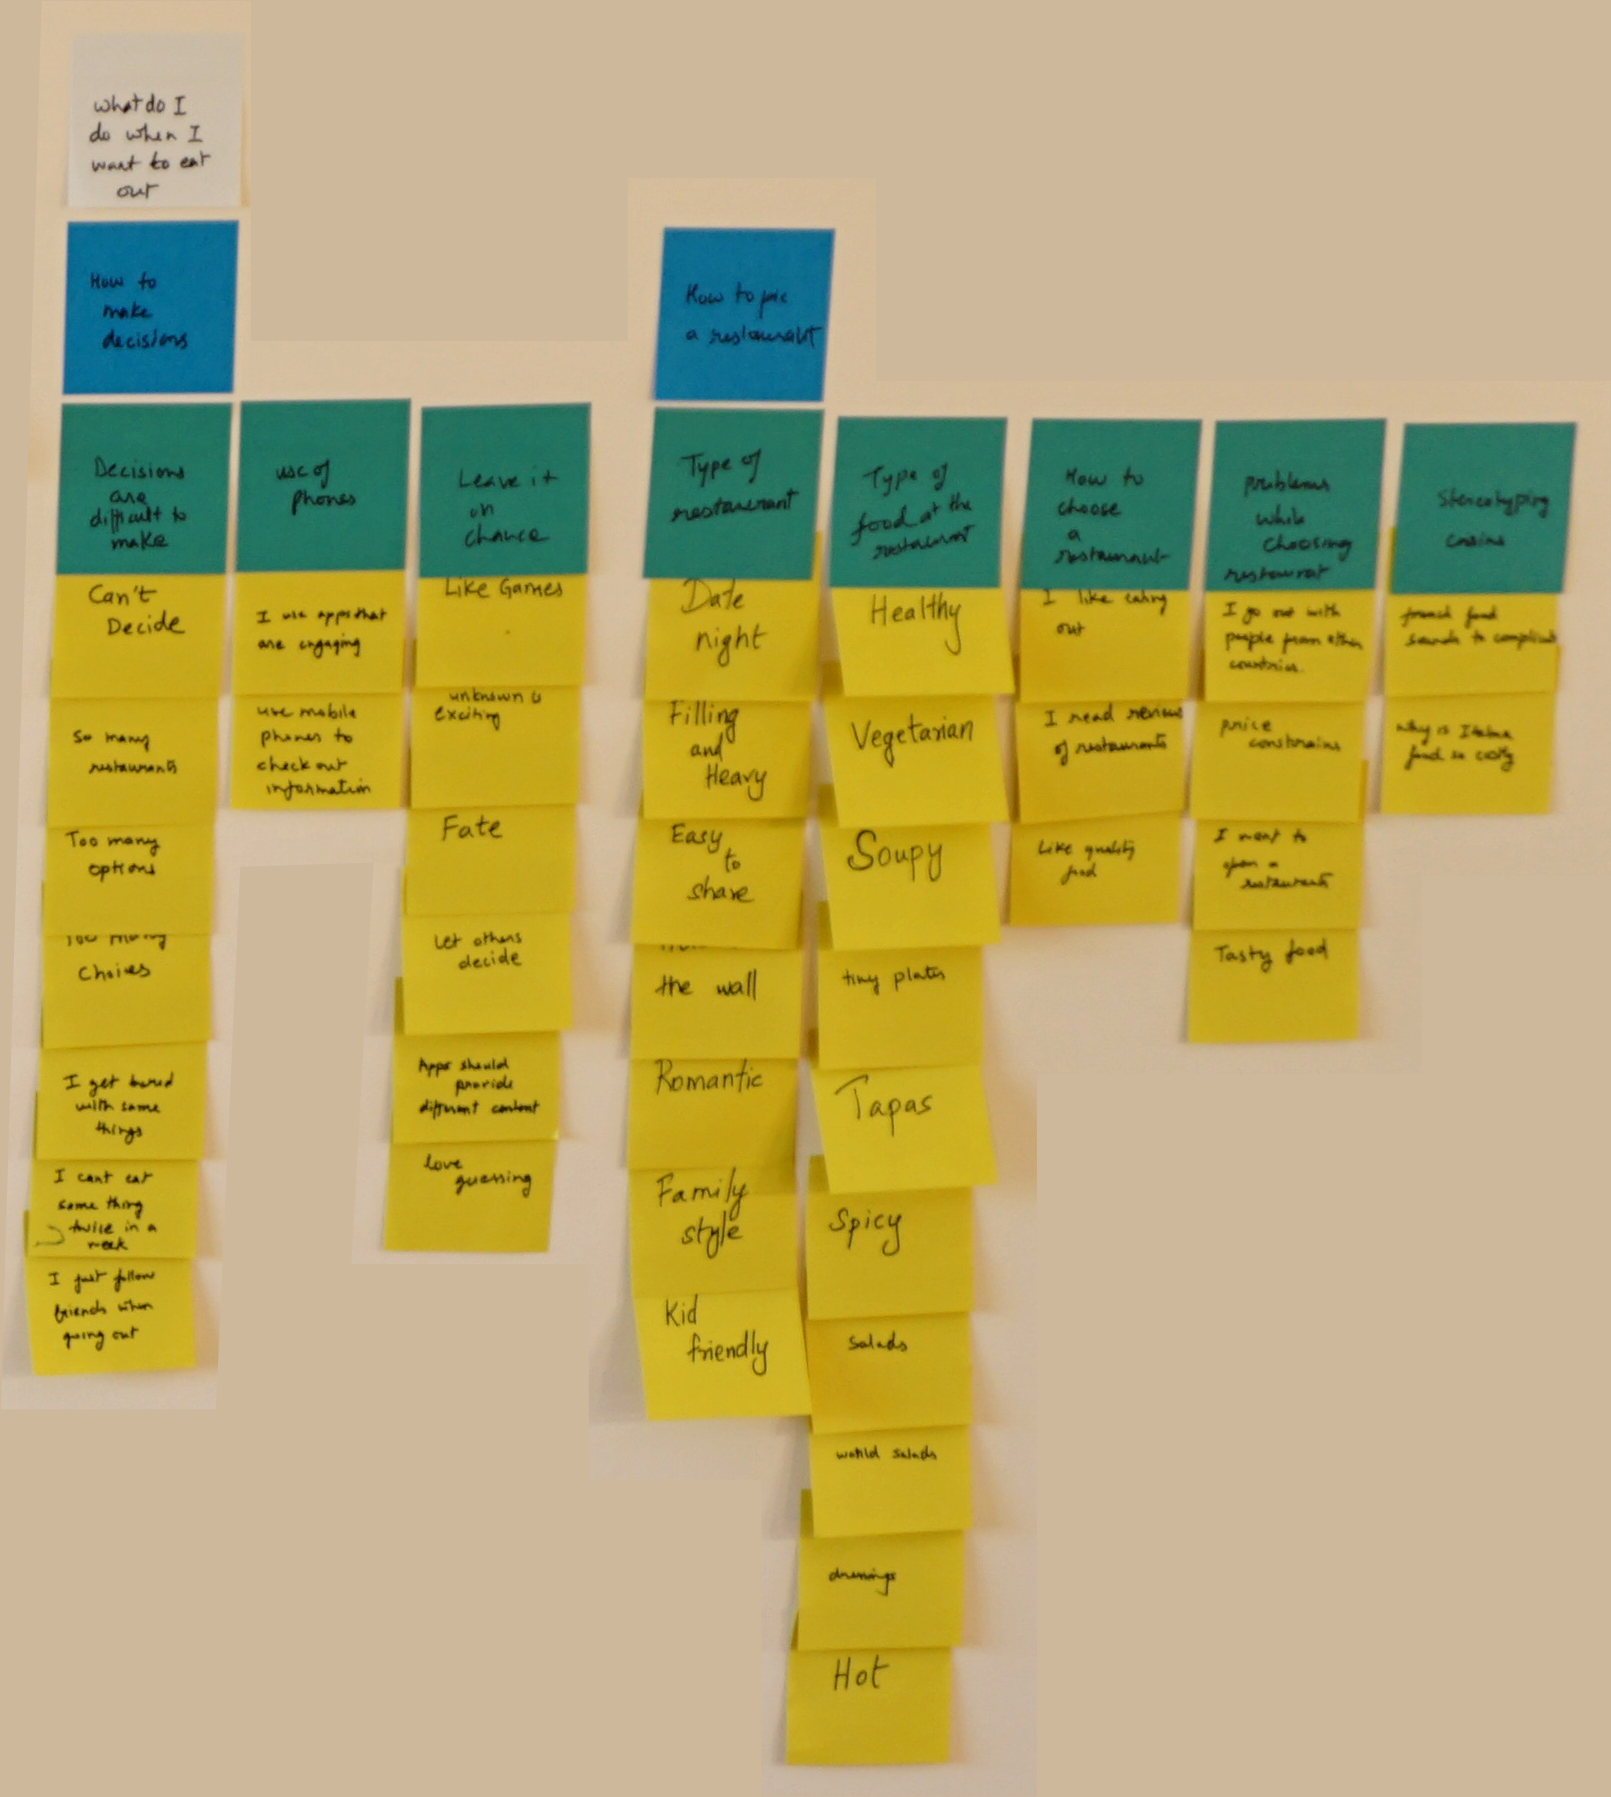 what do I
do when I
want to eat
out
How to
make
decisions
Decisions
are
difficult to
make
Can't
Decide
So many
restaurants
Too many
options
Too many
Choices
I get bored
with same
things
I cant eat
same thing
twice in a
week
I just follow
friends when
going out
use of
phones
I use apps that
are engaging
use mobile
phones to
check out
information
Leave it
on
chance
Like Games
unknown is
exciting
Fate
Let others
decide
Apps should
provide
different content
love
guessing
How to pic
a restaurant
Type of
restaurant
Date
night
Filling
and
Heavy
Easy
to
share
the wall
Romantic
Family
style
Kid
friendly
Type of
food at the
restaurant
Healthy
Vegetarian
Soupy
tiny plates
Tapas
Spicy
Salads
world salads
dressings
Hot
How to
choose
a
restaurant
I like eating
out
I read reviews
of restaurants
Like quality
food
problems
while
choosing
restaurat
I go out with
people from other
countries.
price
constrains
I want to
open a
restaurants
Tasty food
Stereotyping
french food
sounds to complicated
why is Italian
food so costly